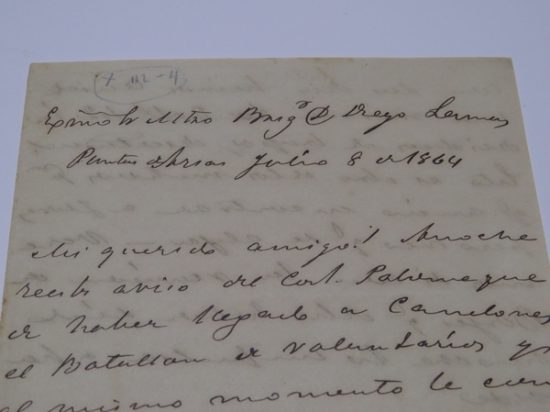 X III - 43
Exmo Sr Mtro Brigr D Diego Lamas
Puntas de Arias Julio 8 de 1864
Mi querido amigo! Anoche
recibi aviso del Corl. Palomeque
de haber llegado a Canelones
el Batallon de Voluntarios y
el mismo momento le